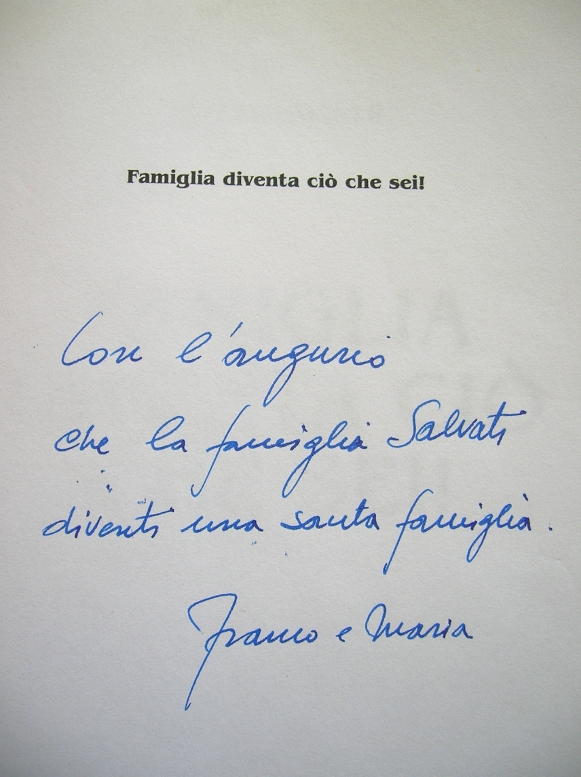 Famiglia diventa ciò che sei!
Con l'augurio
che la famiglia Salvati
diventi una santa famiglia.
Franco e Maria